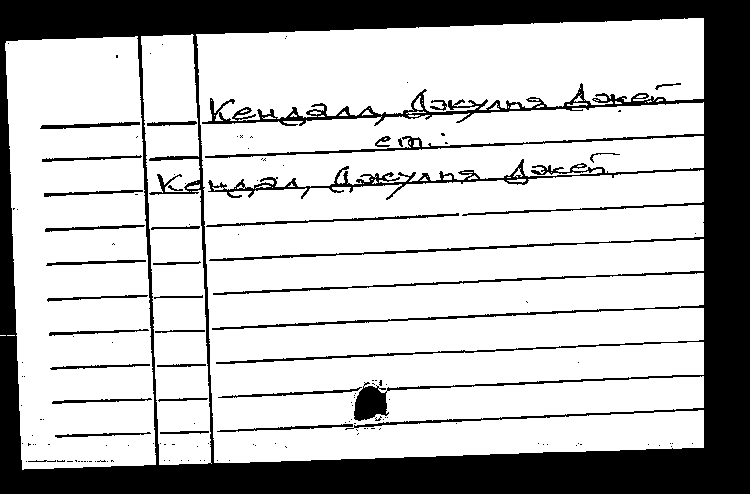 Кендалл, Джулия Джей
см.:
Кендал, Джулия Джей